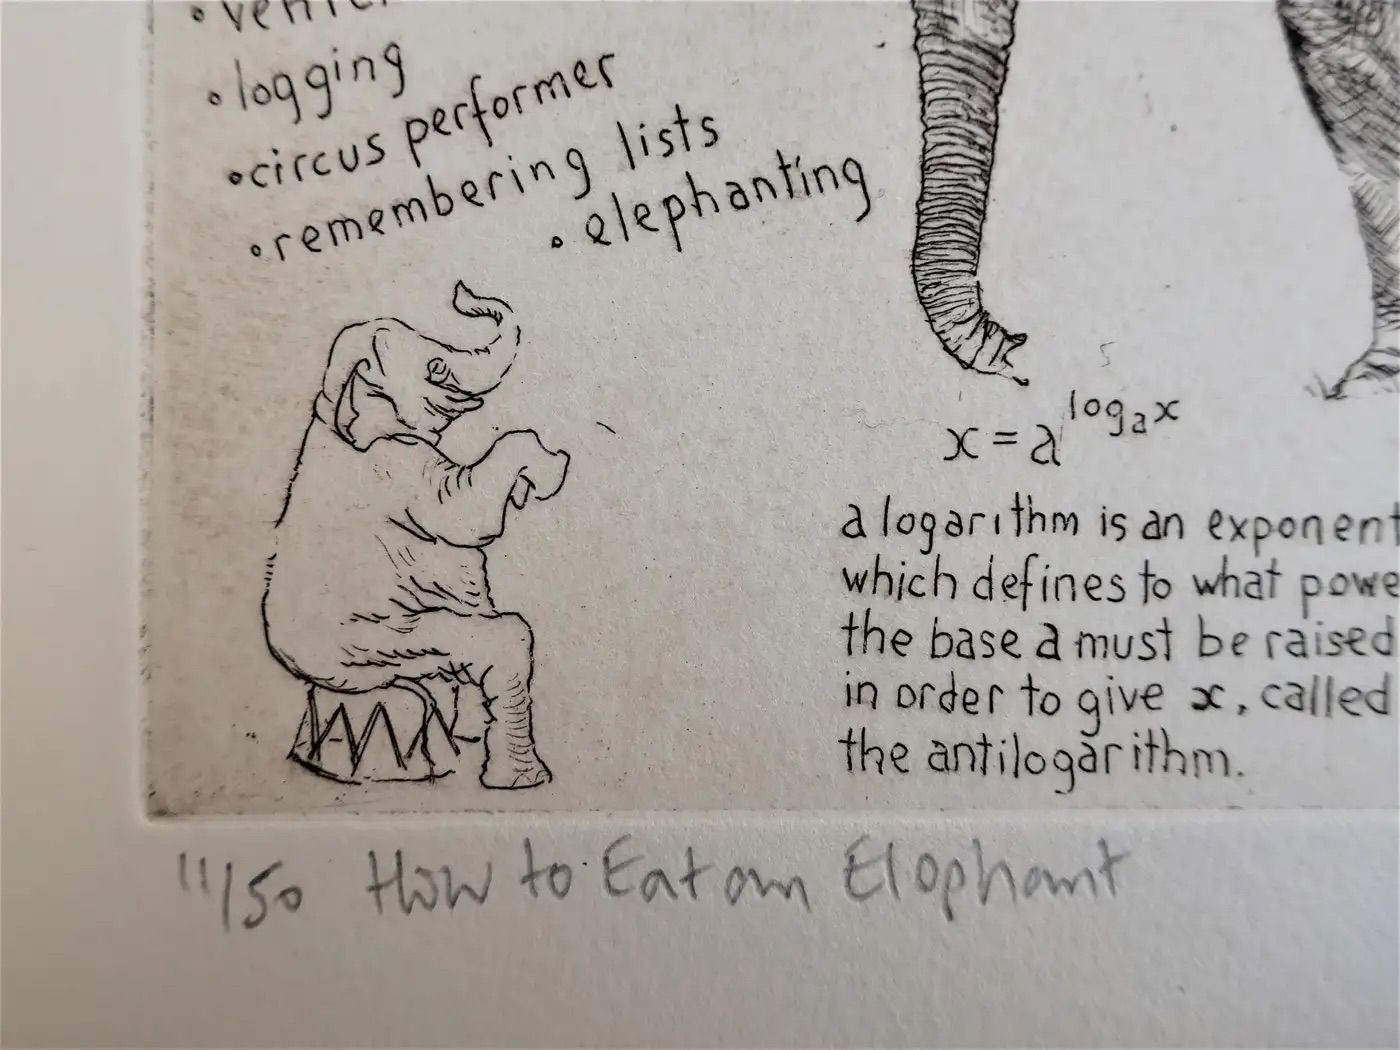 • logging
• circus performer
• remembering lists
• elephanting
x = a^log_a x
a logarithm is an exponent
which defines to what powe
the base a must be raised
in order to give x, called
the antilogarithm.
11/50 How to Eat an Elephant